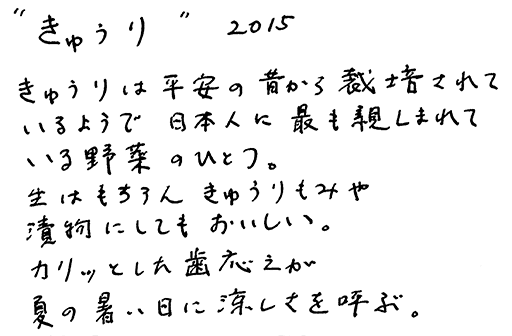 "きゅうり" 2015
きゅうりは平安の昔から栽培されて
いるようで 日本人に最も親しまれて
いる野菜のひとつ。
生はもちろん きゅうりもみや
漬物にしても おいしい。
カリッとした歯応えが
夏の暑い日に涼しさを呼ぶ。